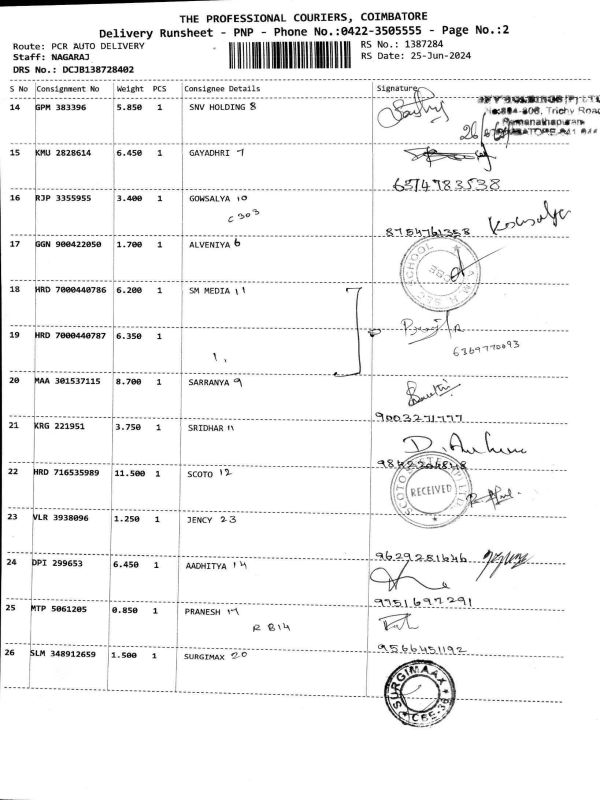 THE PROFESSIONAL COURIERS, COIMBATORE
Delivery Runsheet - PNP - Phone No.:0422-3505555 - Page No.:2
Route: PCR AUTO DELIVERY RS No.: 1387284
Staff: NAGARAJ RS Date: 25-Jun-2024
DRS No.: DCJB138728402
S No Consignment No Weight PCS Consignee Details Signature
14 GPM 383396 5.850 1 SNV HOLDING 8
Trichy Road
Ramanathapuram
26/6
15 KMU 2828614 6.450 1 GAYADHRI 7
6374783538
16 RJP 3355955 3.400 1 GOWSALYA 10
C 303
8754761358 Kowsalya
17 GGN 900422050 1.700 1 ALVENIYA 6
SEC SCHOOL
CBE
18 HRD 7000440786 6.200 1 SM MEDIA 11
19 HRD 7000440787 6.350 1
6369770093
20 MAA 301537115 8.700 1 SARRANYA 9
9003271777
21 KRG 221951 3.750 1 SRIDHAR 11
9842204848
22 HRD 716535989 11.500 1 SCOTO 12
SCOTO
RECEIVED
23 VLR 3938096 1.250 1 JENCY 23
9629251646
24 DPI 299653 6.450 1 AADHITYA 14
9751697291
25 MTP 5061205 0.850 1 PRANESH 17
R B14
9566451192
26 SLM 348912659 1.500 1 SURGIMAX 20
SURGIMAAX
CBE-36